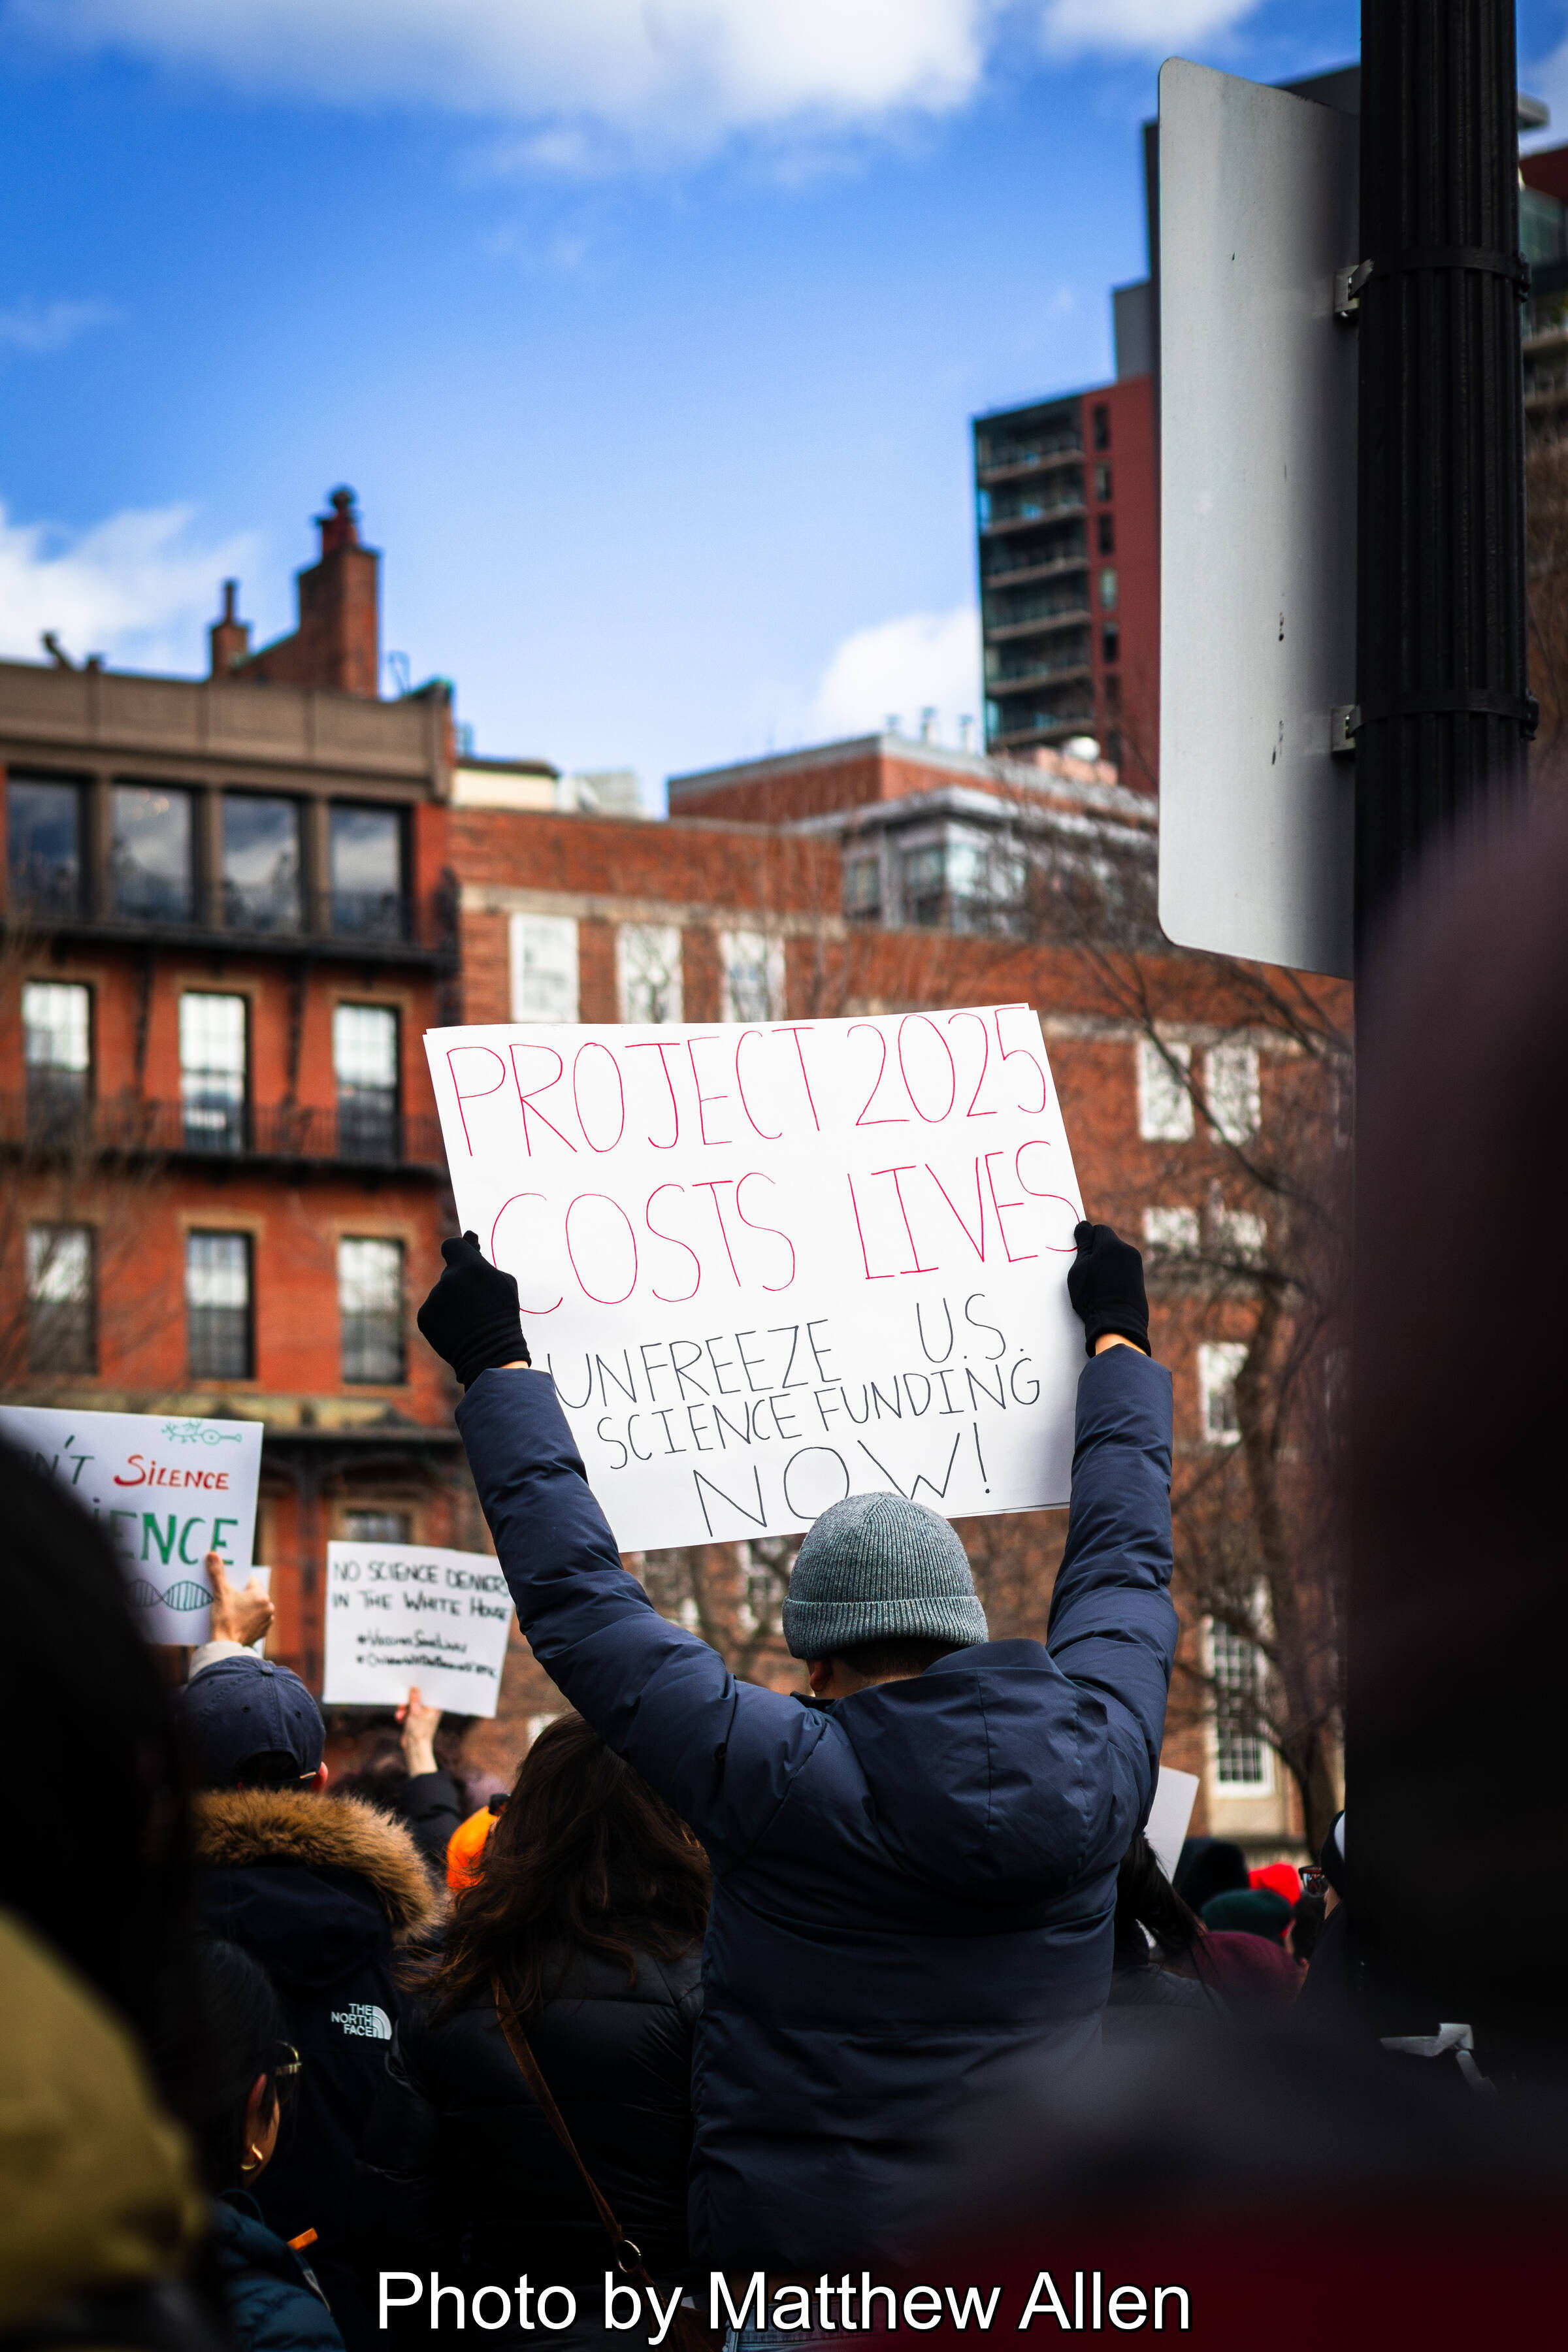 PROJECT 2025
COSTS LIVES
UNFREEZE U.S.
SCIENCE FUNDING
NOW!
N'T SILENCE
IENCE
NO SCIENCE DENIERS
IN THE WHITE HOUSE
THE
NORTH
FACE
Photo by Matthew Allen